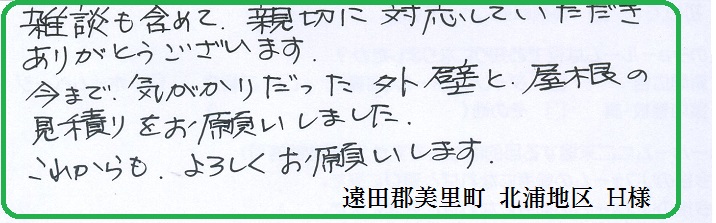 雑談も含めて、親切に対応していただき
ありがとうございます.
今まで、気がかりだった外壁と屋根の
見積りをお願いしました.
これからも、よろしくお願いします
遠田郡美里町 北浦地区 H様